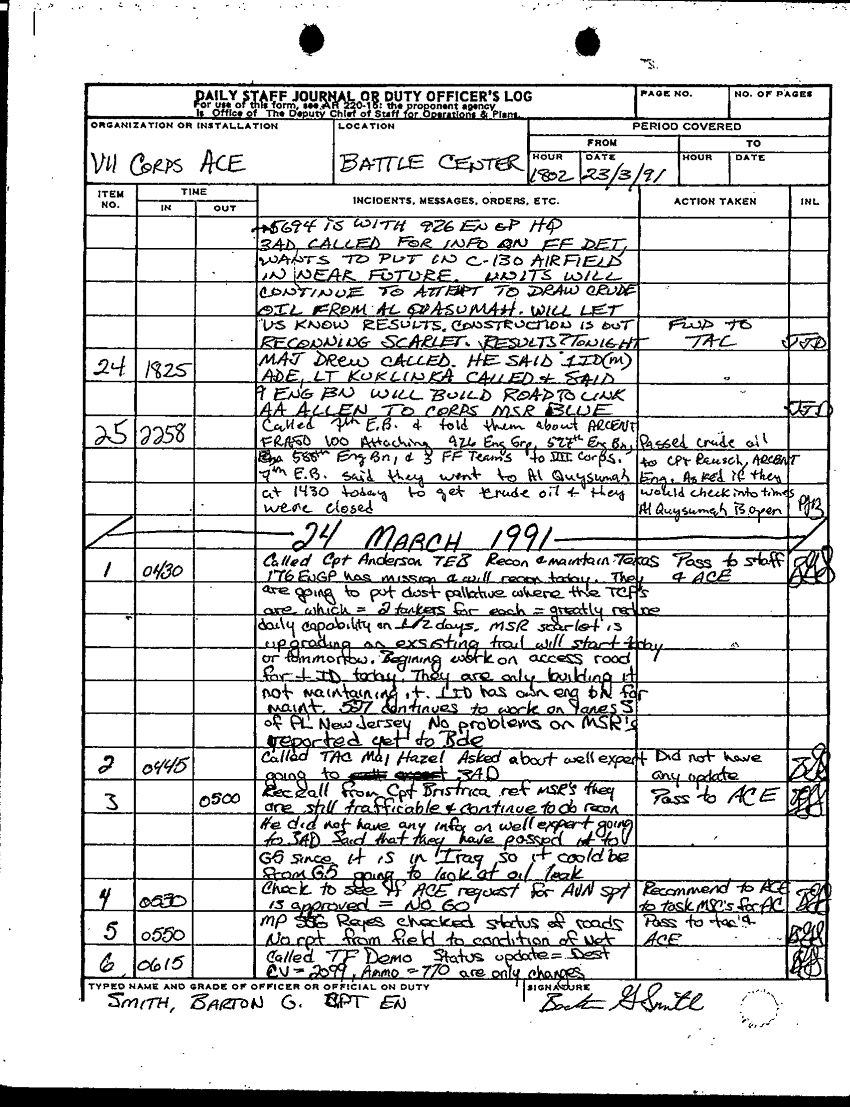 DAILY STAFF JOURNAL OR DUTY OFFICER'S LOG
For use of this form, see AR 220-15; the proponent agency
is Office of The Deputy Chief of Staff for Operations & Plans.
PAGE NO.
NO. OF PAGES
ORGANIZATION OR INSTALLATION
VII CORPS ACE
LOCATION
BATTLE CENTER
PERIOD COVERED
FROM
TO
HOUR
DATE
HOUR
DATE
1802
23/3/91
ITEM NO.
TIME
IN
OUT
INCIDENTS, MESSAGES, ORDERS, ETC.
ACTION TAKEN
INL
5694 IS WITH 926 EN GP HQ
3AD CALLED FOR INFO ON FF DET,
WANTS TO PUT IN C-130 AIRFIELD
IN NEAR FUTURE. UNITS WILL
CONTINUE TO ATTEPT TO DRAW CRUDE
OIL FROM AL QUASUMAH. WILL LET
US KNOW RESULTS. CONSTRUCTION IS OUT FWD TO
RECONNING SCARLET. RESULTS? TONIGHT TAC
24 1825 MAJ DREW CALLED. HE SAID 1ID(M)
ADE, LT KUKLINKA CALLED & SAID
9 ENG BN WILL BUILD ROAD TO LINK
AA ALLEN TO CORPS MSR BLUE
25 2258 Called 7th E.B. & told them about ARCENT
FRAGO 100 Attaching 926 Eng Grp, 527th Eng Bn, Passed crude oil
588th Eng Bn, & 3 FF Team's to VII Corps. to CPT Rausch, ARCENT
7th E.B. said they went to Al Quysumah Eng. Asked if they
at 1430 today to get crude oil & they would check into times
were closed Al Quysumah is open
24 MARCH 1991
1 0430 Called Cpt Anderson 7EB Recon & maintain Texas Pass to staff
176 ENGP has mission & will recon today. They & ACE
are going to put dust pallative where the TCP's
are which = 2 tankers for each = greatly reduce
daily capability on 1/2 days. MSR scarlet is
upgrading an exsisting trail will start today
or tommorrow. Begining work on access road
for 1 ID today. They are only building it
not maintaining it. 1 ID has own eng bN for
maint. 527 continues to work on lanes S
of PL New Jersey No problems on MSR's
reported yet to Bde
2 0445 Called TAC Maj Hazel Asked about well expert Did not have
going to 3AD any update
3 0500 Rec call from Cpt Bristrica ref MSR's they Pass to ACE
are still trafficable & continue to do recon
He did not have any info on well expert going
to 3AD Said that they have passed it to
G5 since it is in Iraq so it could be
from G5 going to look at oil leak
4 0530 Check to see if ACE request for AVN spt Recommend to ACE
is approved = NO GO to task MSC's for AC
5 0550 MP SSG Reyes checked status of roads Pass to tac &
No rpt from field to condition of Net ACE
6 0615 Called TF Demo Status update = Dest
CV = 2099, Ammo = 770 are only changes
TYPED NAME AND GRADE OF OFFICER OR OFFICIAL ON DUTY
SMITH, BARTON G. CPT EN
SIGNATURE
Barton G Smith